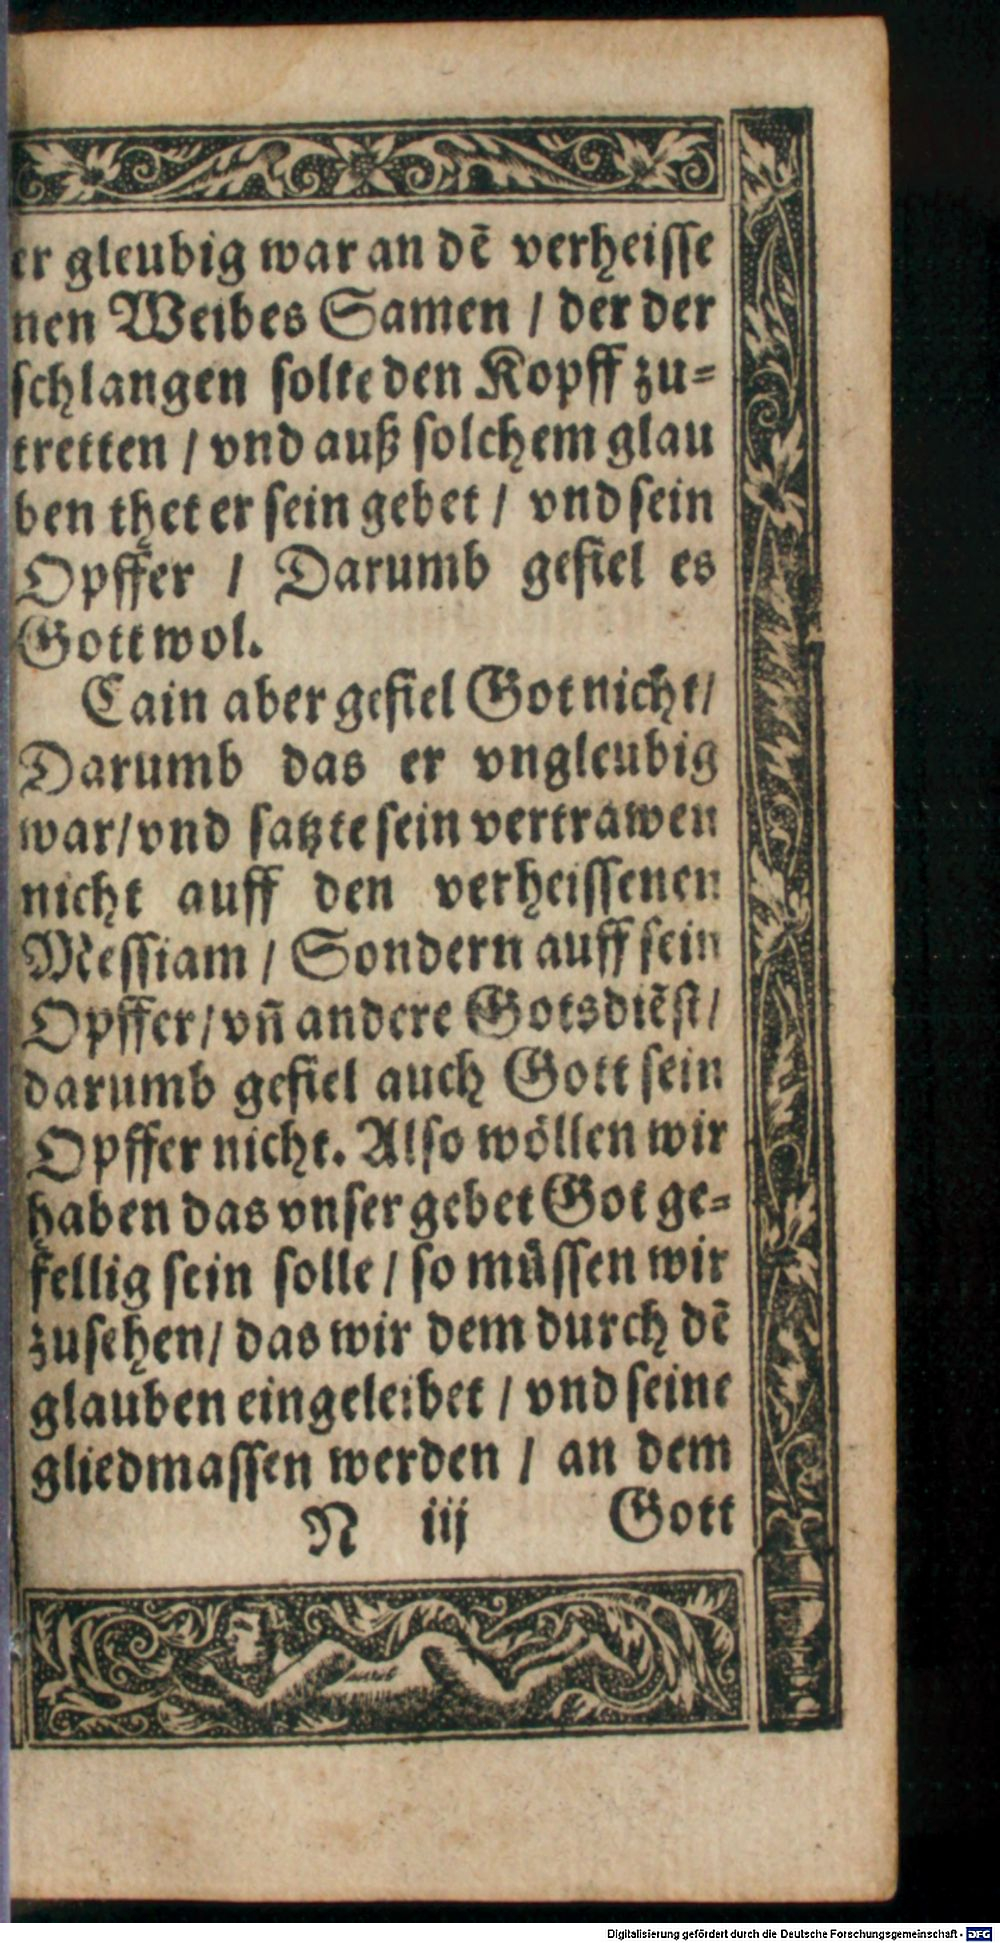 er gleubig war an dē verheisse
nen Weibes Samen / der der
schlangen solte den Kopff zu-
tretten / vnd auß solchem glau
ben thet er sein gebet / vnd sein
Opffer / Darumb gefiel es
Gott wol.
Cain aber gefiel Got nicht /
Darumb das er vngleubig
war / vnd satzte sein vertrawen
nicht auff den verheissenen
Messiam / Sondern auff sein
Opffer / vn̄ andere Gotsdiēst /
darumb gefiel auch Gott sein
Opffer nicht. Also wöllen wir
haben das vnser gebet Got ge-
fellig sein solle / so müssen wir
zusehen / das wir dem durch dē
glauben eingeleibet / vnd seine
gliedmassen werden / an dem
N iij Gott
Digitalisierung gefördert durch die Deutsche Forschungsgemeinschaft - DFG